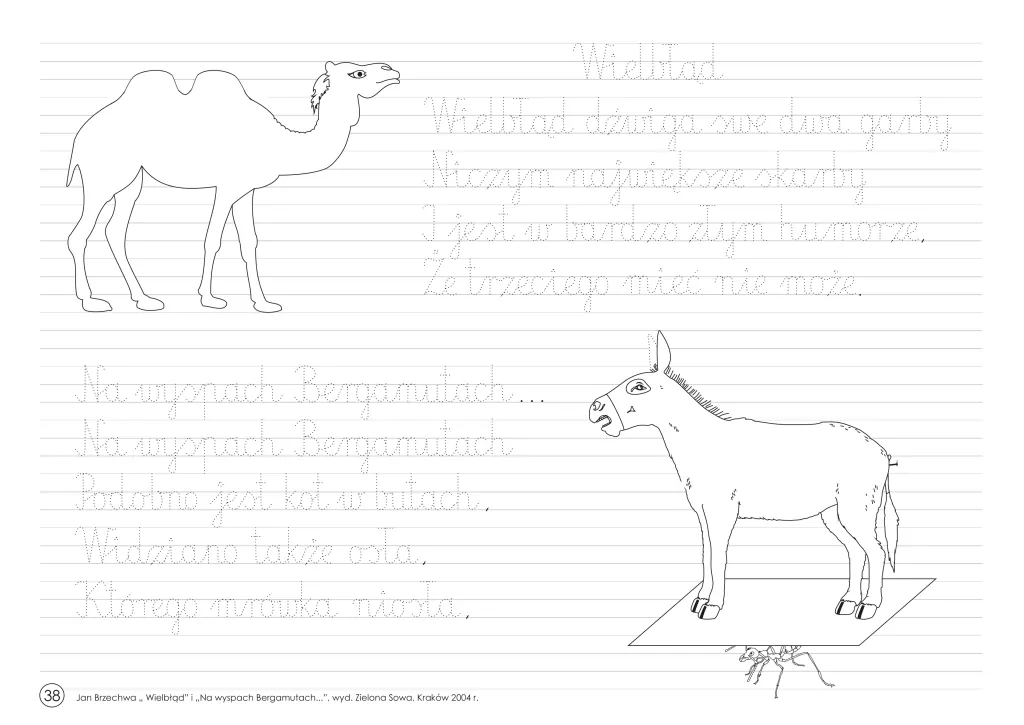 Wielbłąd
Wielbłąd dźwiga swe dwa garby
Niczym największe skarby
I jest w bardzo złym humorze,
Że trzeciego mieć nie może.
Na wyspach Bergamutach...
Na wyspach Bergamutach
Podobno jest kot w butach,
Widziano także osła,
Którego mrówka niosła,
38 Jan Brzechwa „ Wielbłąd" i „Na wyspach Bergamutach...", wyd. Zielona Sowa, Kraków 2004 r,